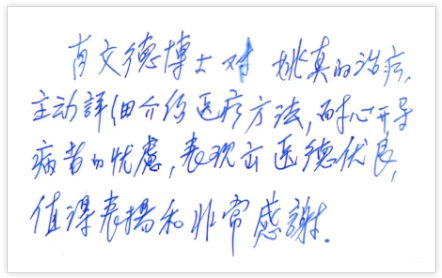 肖文德博士对姚真的治疗,
主动詳细介绍医疗方法,耐心开导
病者的忧慮,表现出医德优良,
值得表揚和非常感謝.